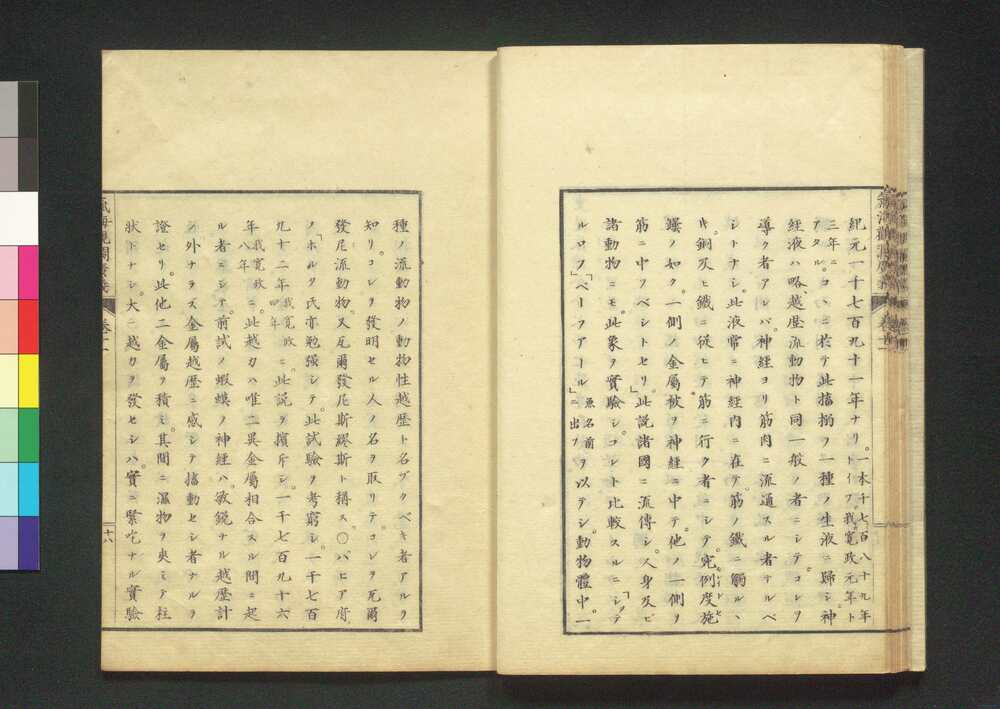 紀元一千七百九十一年ナリ。一本千七百八十九年
トイフ。我寛政元年ト
三年ニ
アタル。コヽニ於テ此搐搦ヲ一種ノ生液ニ歸シ神
經液ハ略越歴流動物ト同一般ノ者ニシテコレヲ
導ク者アレバ神經ヨリ筋肉ニ流通スル者ナルベ
シトナシ。此液常ニ神經内ニ在テ筋ノ鐵ニ觸ルヽ
時。銅及ヒ鐵ニ從ヒテ筋ニ行ク者ニシテ
鏤ノ如ク。一側ノ金屬被ヲ神經ニ中テ。他ノ一側ヲ
筋ニ中ツベシトセリ。此説諸國ニ流傳シ。人身及ヒ
諸動物ニモ。此象ヲ實驗シ。コレト比較スルニ。「シッテ
ルロフ」「ベーフアール」魚名前
ニ出ツヲ以テシ。動物體中。一
種ノ流動物ノ動物性越歴ト名ヅクベキ者アルヲ
知リ。コレヲ發明セル人ノ名ヲ取リテ。コレヲ瓦爾
發尼流動物。又瓦爾發尼斯繆斯ト稱ス。〇パヒア府
ノ「ホルタ」氏亦勉強シテ。此試驗ヲ考窮シ。一千七百
九十二年我寛政
四年ニ。此説ヲ擯斥シ。一千七百九十六
年我寛政
八年ニ。此越力ハ唯二異金屬相合スル間ニ起
ル者ニシテ。前試ノ蝦蟆ノ神經ハ。敏鋭ナル越歴計
ノ外ナラズ。金屬越歴ニ感シテ搐動セシ者ナルヲ
證セリ。此他二金屬ヲ積ミ。其間ニ濕物ヲ夾ミテ柱
状トナシ。大ニ越力ヲ發セシハ。實ニ緊咜ナル實驗
卷十一
十六